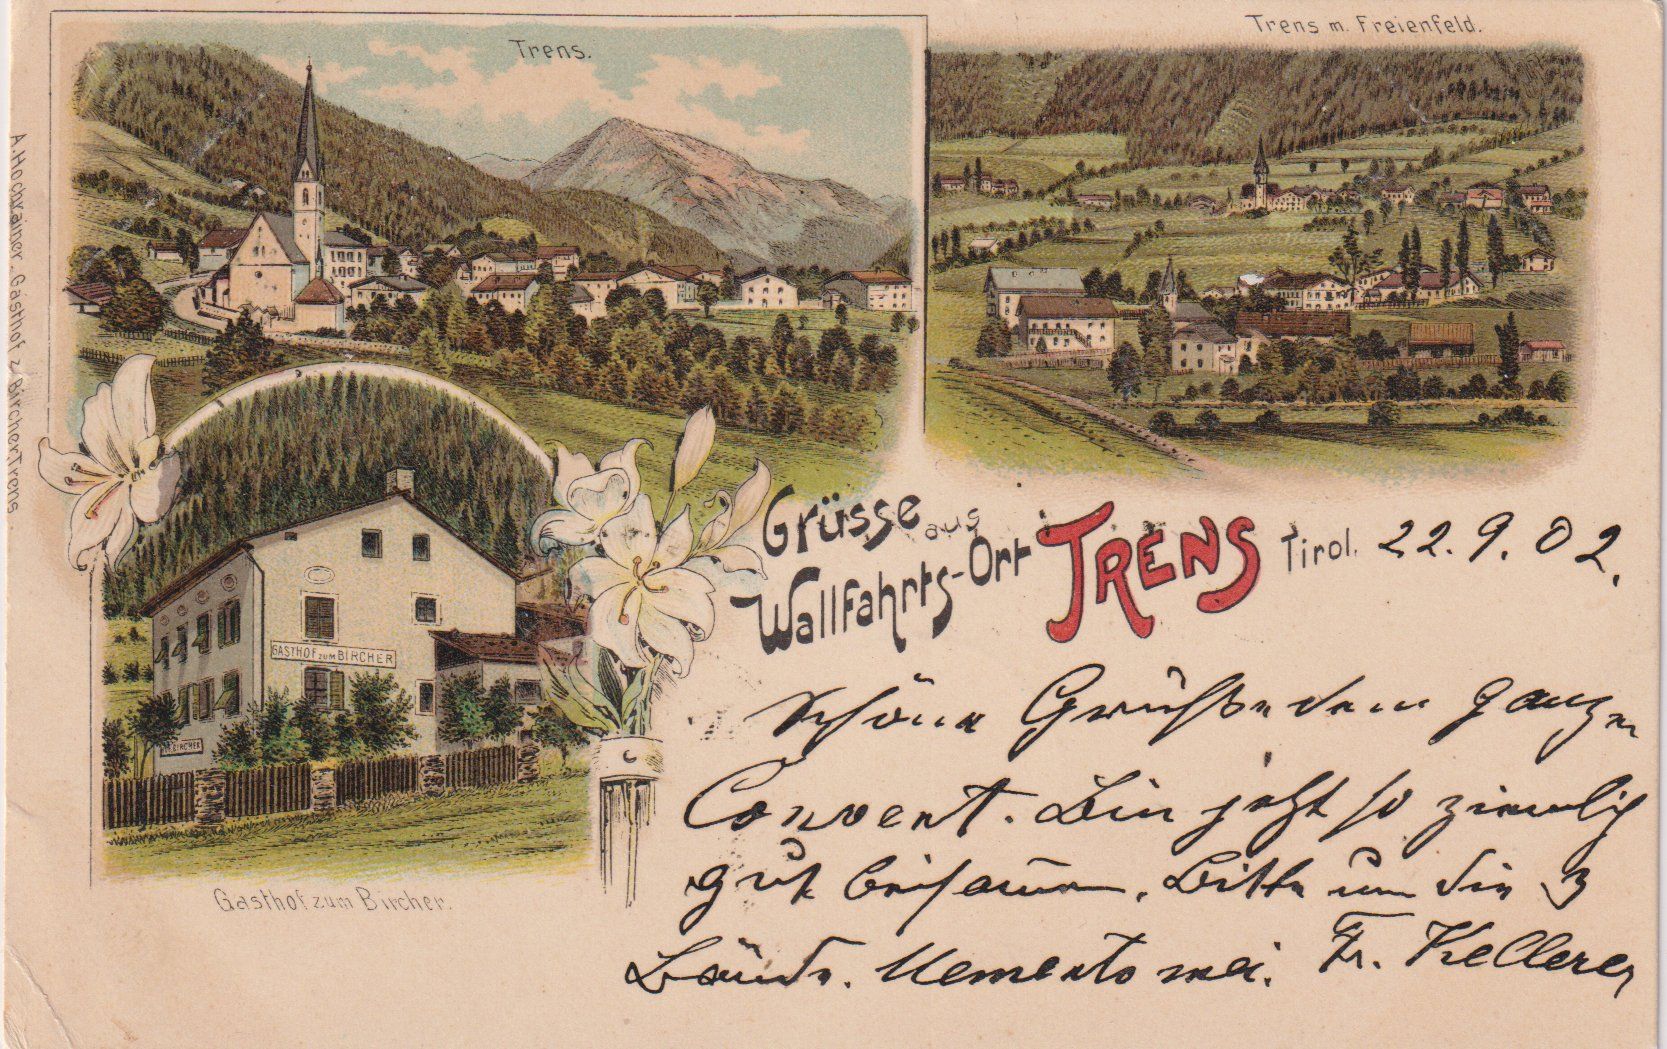 Trens.
Trens m. Freienfeld.
A. Hochrainer. Gasthof z. Bircher Trens.
GASTHOF ZUM BIRCHER
BIRCHER
Gasthof zum Bircher.
Grüsse aus
Wallfahrts-Ort TRENS Tirol. 22. 9. 02.
Schöne Grüße dem ganzen
Convent. Bin jetzt so ziemlich
gut beisammen. Bitte um die 3
Bände. Memento mei. Fr. Kellerer